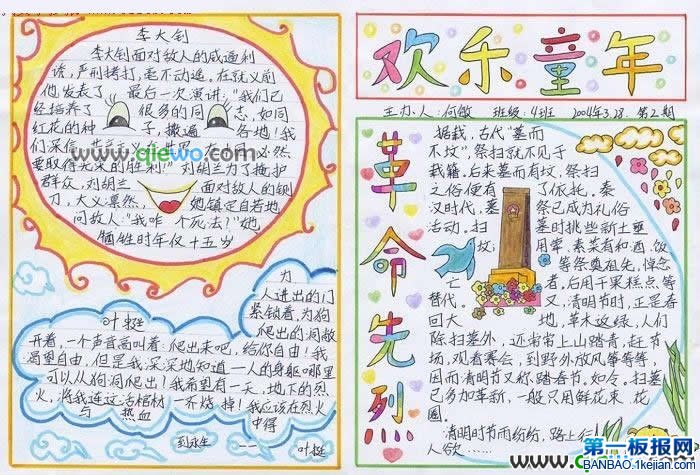 李大钊
李大钊面对敌人的威逼利
诱，严刑拷打，毫不动遥，在就义前
他发表了 最后一次演讲："我们已
经培养了 很多的同 志，如同
红花的种 子，撒遍 各地！我
们深信 必然
要取得光荣的胜利！"刘胡兰为了掩护
群众，刘胡兰 面对敌人的铡
刀，大义凛然， 她镇定自若地
问敌人："我咋个死法？"她
牺牲时年仅十五岁
www.qiewo.com
叶挺
为
人进出的门
紧锁着，为狗
爬出的洞敞
开着，一个声音高叫着：爬出来吧，给你自由！我
渴望自由，但是我深深地知道一人的身躯哪里
可以从狗洞爬出！我希望有一天，地下的烈
火，将我连这活棺材一齐烧掉！我应该在烈火
与 热血 中得
到永生 —— 叶挺
欢乐童年
主办人：何敏 班级：4班 2004年3.28 第2期
革命先烈
据载，古代"墓而
不坟"，祭扫就不见于
载籍。后来墓而有坟，祭扫
之俗便有 了依托。秦
汉时代，墓 祭已成为礼俗
活动。扫 墓时挑些新土垩
坟； 用荤、素菜有和酒、饭
等祭奠祖先，悼念
亡 者；后用干果糕点等
替代。 又，清明节时，正是春
回大 地，草木返绿，人们
除扫墓外，还常常上山踏青、赶节
场，观看赛会，到野外放风筝等等，
因而清明节又称踏春节。如今，扫墓
已多加革新，一般只用鲜花束、花
圈。
清明时节雨纷纷，路上行
人欲……
www.qiewo.com
第一板报网
BANBAO.1kejian.com